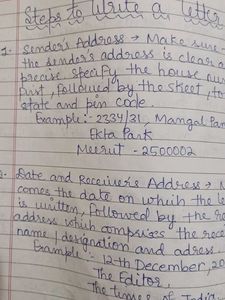 Steps to Write a letter
1. Sender's Address → Make sure
the sender's address is clear a
precise specify the house nu
first, followed by the street, to
state and pin code.
Example:- 2334/31, Mangal Pan
Ekta Park
Meerut - 2500002
Date and Receiver's Address →
comes the date on which the le
is written, Followed by the re
address which comprises the rece
name / designation and adress.
Example: 12th December, 20
The Editor
The times of India